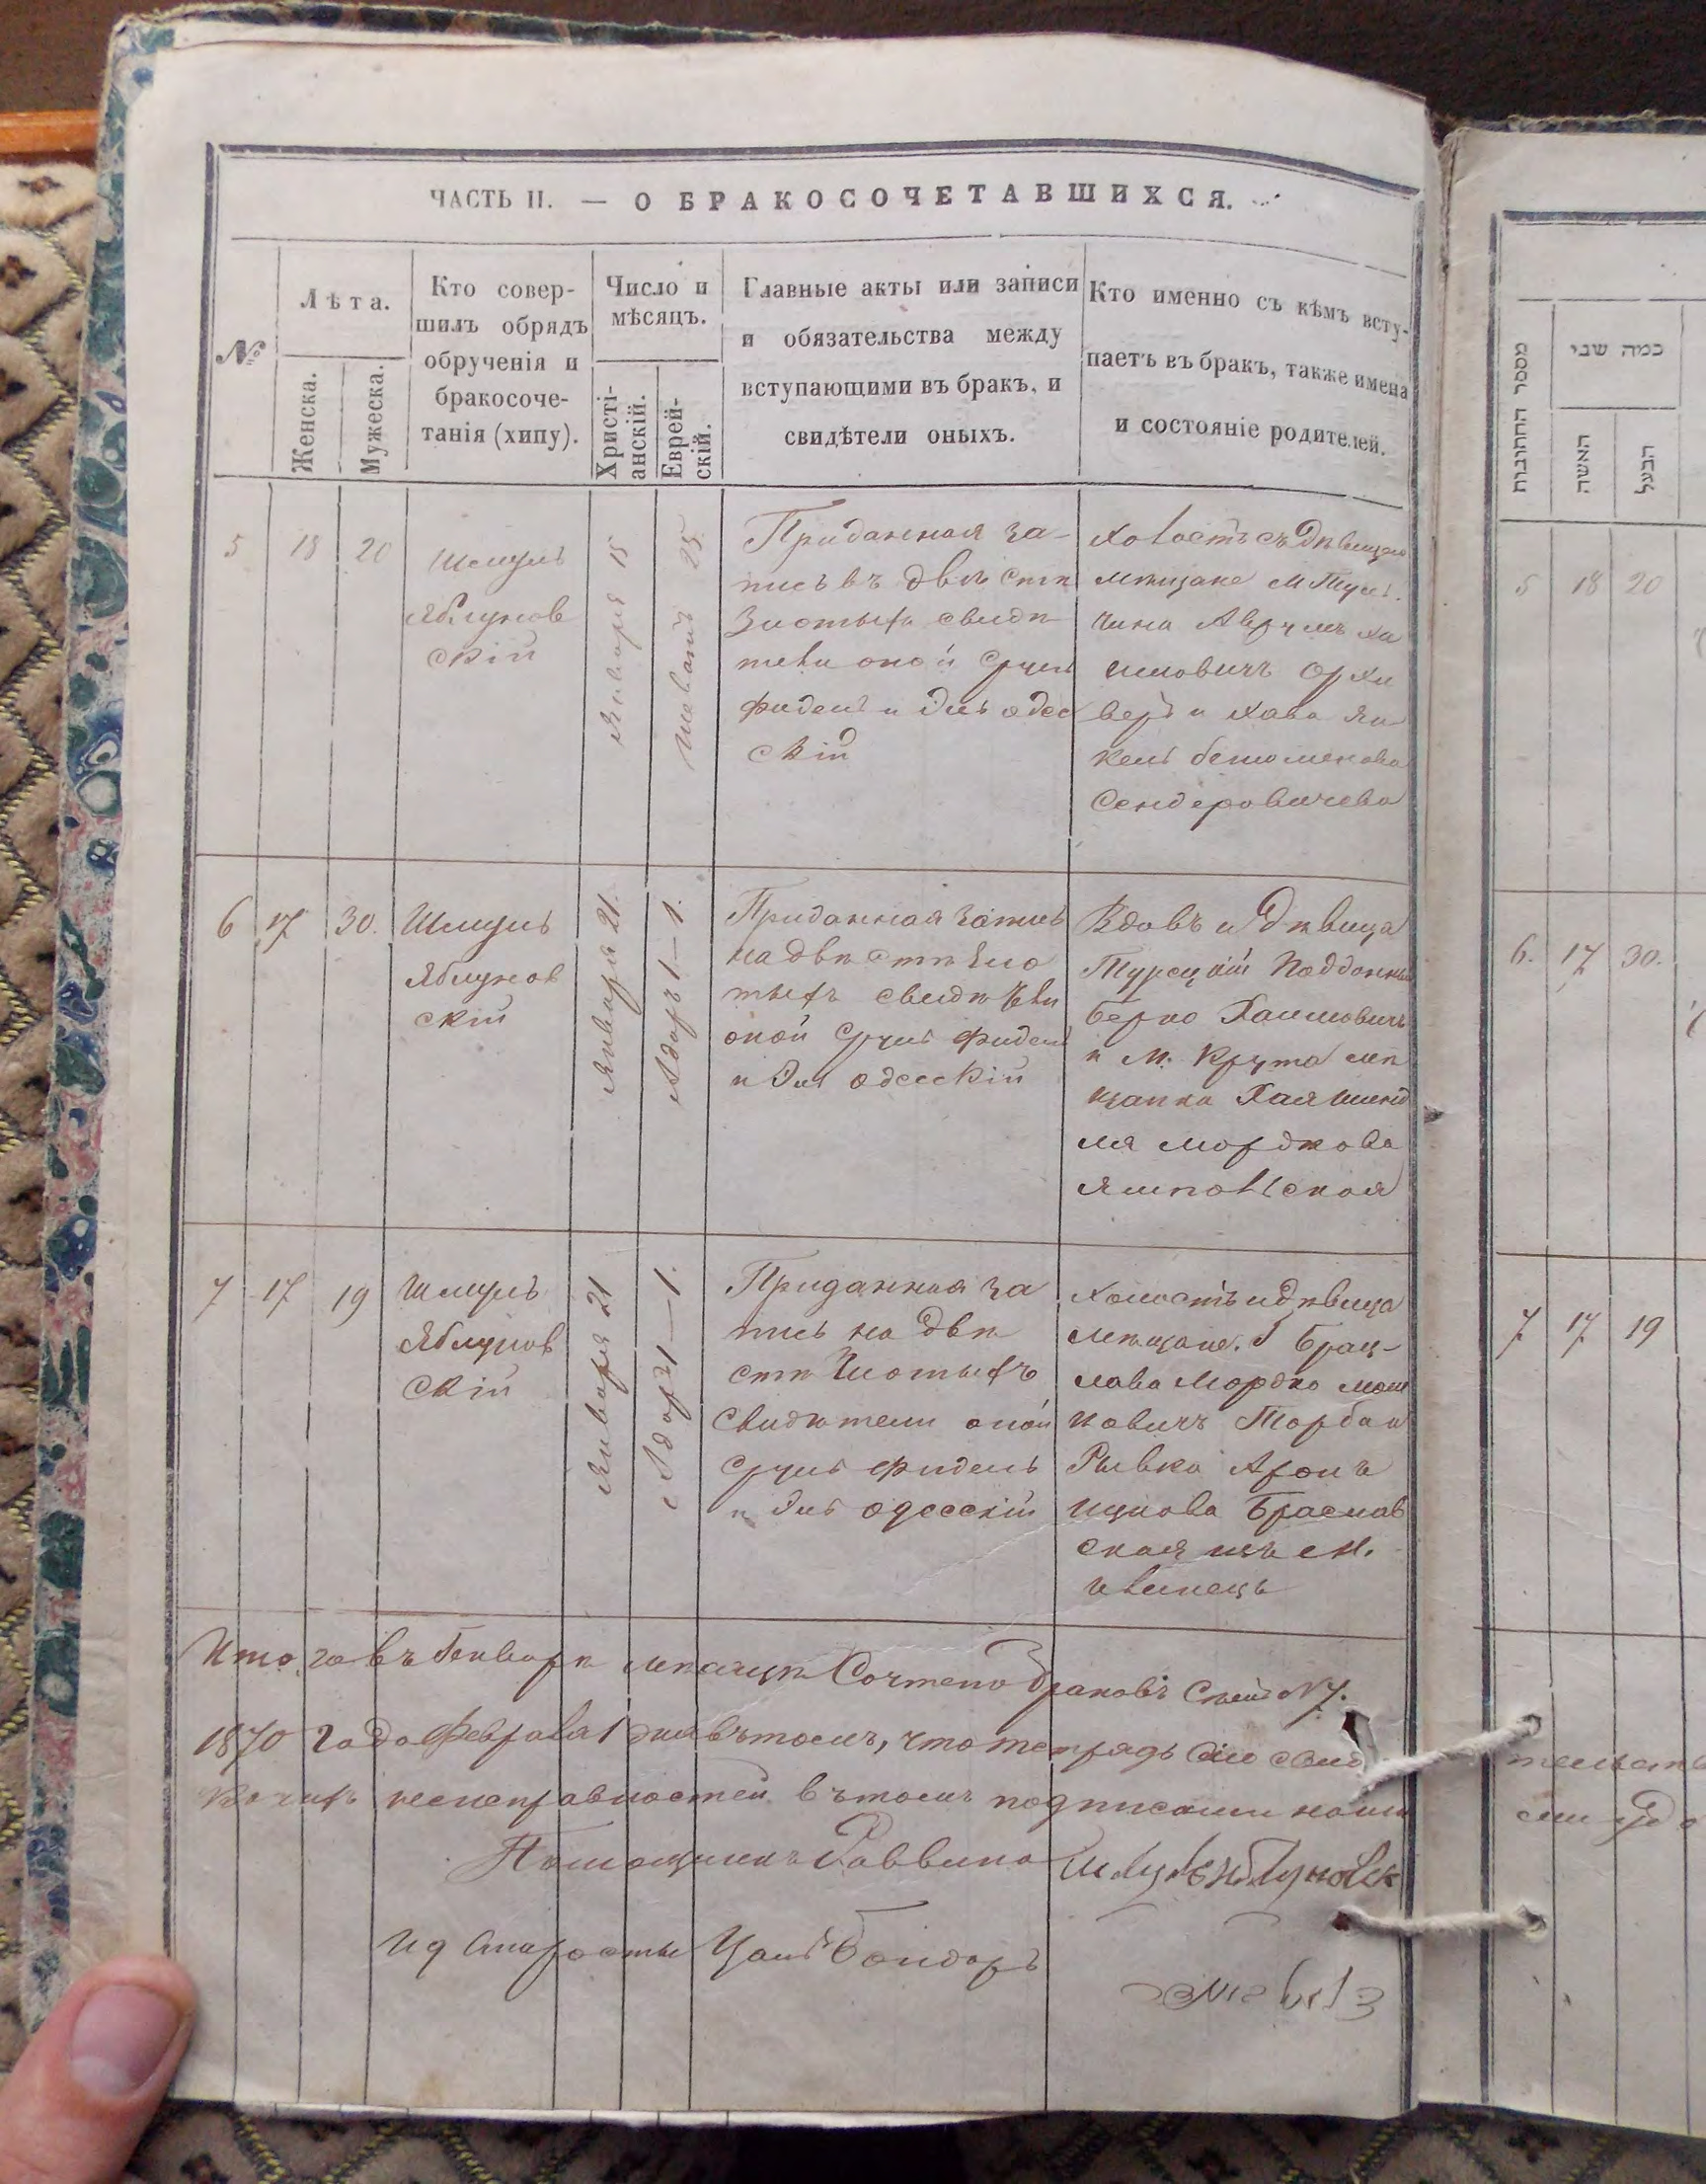 ЧАСТЬ II. — О БРАКОСОЧЕТАВШИХСЯ.
№
Лѣта.
Женска.
Мужеска.
Кто совер-
шилъ обрядъ
обрученія и
бракосоче-
танія (хипу).
Число и
мѣсяцъ.
Христі-
анскій.
Еврей-
скій.
Главные акты или записи
и обязательства между
вступающими въ бракъ, и
свидѣтели оныхъ.
Кто именно съ кѣмъ всту-
паетъ въ бракъ, также имена
и состояніе родителей.
5
18
20
Шмуль
Яблунов
скій
Января 15
Шеватъ 25.
Приданная за-
пись въ двѣ стѣ
Злотыхъ свидѣ
тели оной Сруль
Фидель и Эль Одес
скій
Холостъ съ Дѣвицею
мѣщане М Туль
чина Аврумъ Ха
имовичъ
и Хава Ян
кель
Сендеровичева
6
17
30.
Шмуль
Яблунов
скій
Января 21.
Адаръ 1 — 1.
Приданная запись
на двѣ стѣ зло
тыхъ свидѣтели
оной Сруль Фидель
и Эль Одесскій
Вдовъ и Дѣвица
Турецкій Подданный
Берко Хаимовичъ
и М. Крута мѣ
щанка Хая Шенд
ля Мордкова
Ямпольская
7
17
19
Шмуль
Яблунов
скій
Января 21
Адаръ 1 — 1.
Приданная за
пись на двѣ
стѣ Злотыхъ
Свидѣтели оной
Сруль Фидель
и Эль Одесскій
Холостъ и дѣвица
мѣщане. Г Брац-
лава Мордко Мош
ковичъ Торбан
Рывка Аронъ
Ицкова Браслав
ская изъ М.
Ивинецъ
Итого въ Генварѣ мѣсяцѣ Сочтено браковъ Семь № 7.
1870 Года Февраля 1 дня въ томъ, что тетрядь сію свид
неисправностей въ томъ подписами нашими
Помощникъ Раввина Шмуль Яблуновск
И д Старосты Бондаръ
מספר החתובות
כמה שני
האשה
הבעל
5
18
20
6.
17
30.
7
17
19